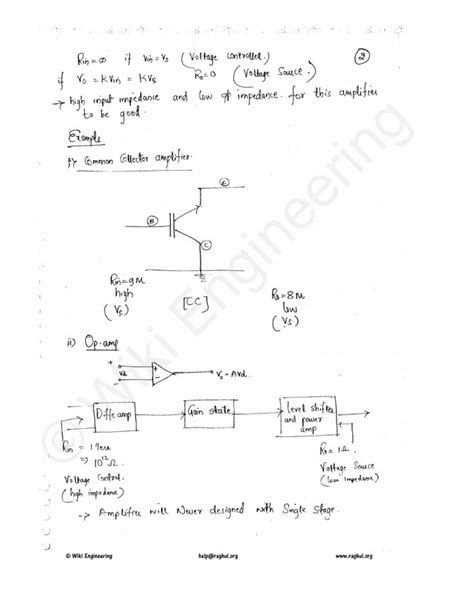 Rin = ∞ if Vin = Vs (Voltage Controlled.)
2
if Vo = KVin = KVs Ro = 0 (Voltage Source.)
→ high input impedance and low o/p impedance for this amplifier
to be good.
Example
i) Common Collector amplifier.
E
B
C
Rin = 9M
high
(Vc)
[CC]
Ro = 8M
low
(Vs)
ii) Op-amp
+
Vd
-
+
-
Vo = AVd.
Diffe amp
Gain state
Level shifter
and power
amp
Rin =
⇒ 10¹²Ω.
Voltage Control.
(high impedance)
Ro = 1Ω
Voltage Source
(low impedance)
→ Amplifier will Never designed with Single Stage.
© Wiki Engineering
© Wiki Engineering
help@raghul.org
www.raghul.org